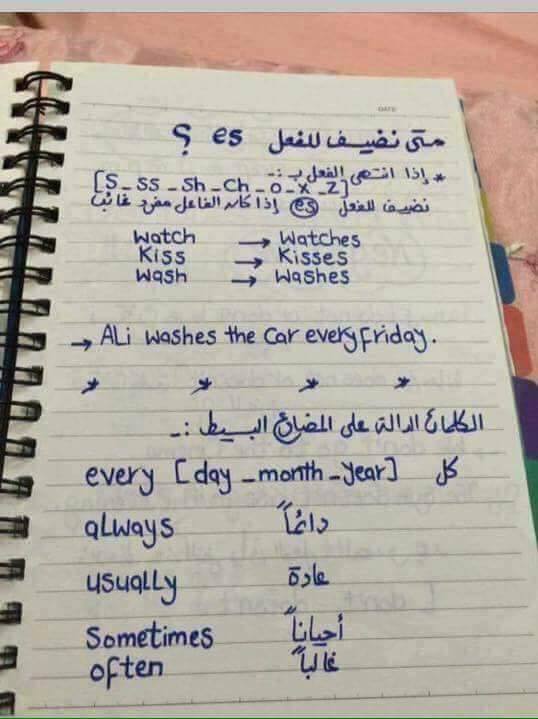 DATE
متى نضيف للفعل es ؟
* إذا انتهى الفعل بـ :-
[S _ SS _ Sh _ Ch _ O _ X _ Z]
نضيف للفعل es إذا كان الفاعل مفرد غائب
Watch → Watches
Kiss → Kisses
Wash → Washes
→ ALi washes the Car every Friday.
* * * *
الكلمات الدالة على المضارع البسيط :-
every [day _ month _ year] كل
aLways دائماً
usuaLLy عادة
Sometimes أحياناً
often غالباً